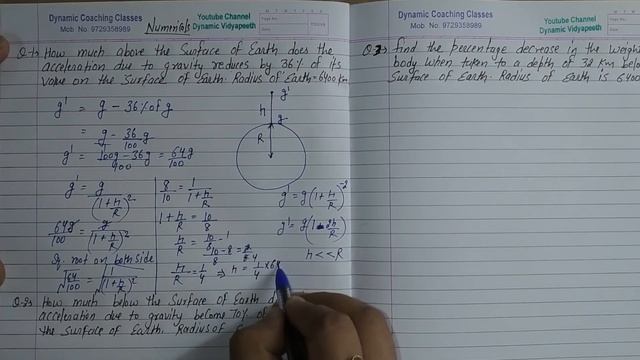 Dynamic Coaching Classes
Mob. No. 9729358989
Numericals
Youtube Channel
Dynamic Vidyapeeth
Q-1) How much above the Surface of Earth does the
acceleration due to gravity reduces by 36% of its
value on the Surface of Earth. Radius of Earth=6400 Km.
g' = g - 36% of g
= g - 36/100 g
g' = 100g-36g/100 = 64g/100
g' = g/(1+h/R)²
64g/100 = g/(1+h/R)²
q. root on both side
√64/100 = √1/(1+h/R)²
8/10 = 1/1+h/R
1+h/R = 10/8
h/R = 10/8 - 1
10-8/8 = 2/8 4
h/R = 1/4 ⇒ h = 1/4 × 6
g'
h
g
R
g' = g(1+h/R)⁻²
g' = g(1-2h/R)
h<<R
Q-2) How much below the Surface of Earth d
acceleration due to gravity become 70% of
the surface of Earth. Radius of E
Dynamic Coaching Classes
Mob. No. 9729358989
Youtube Channel
Dynamic Vidyapeeth
Q-3) find the percentage decrease in the weight
body when taken to a depth of 32 Km belo
Surface of Earth. Radius of Earth is 6400